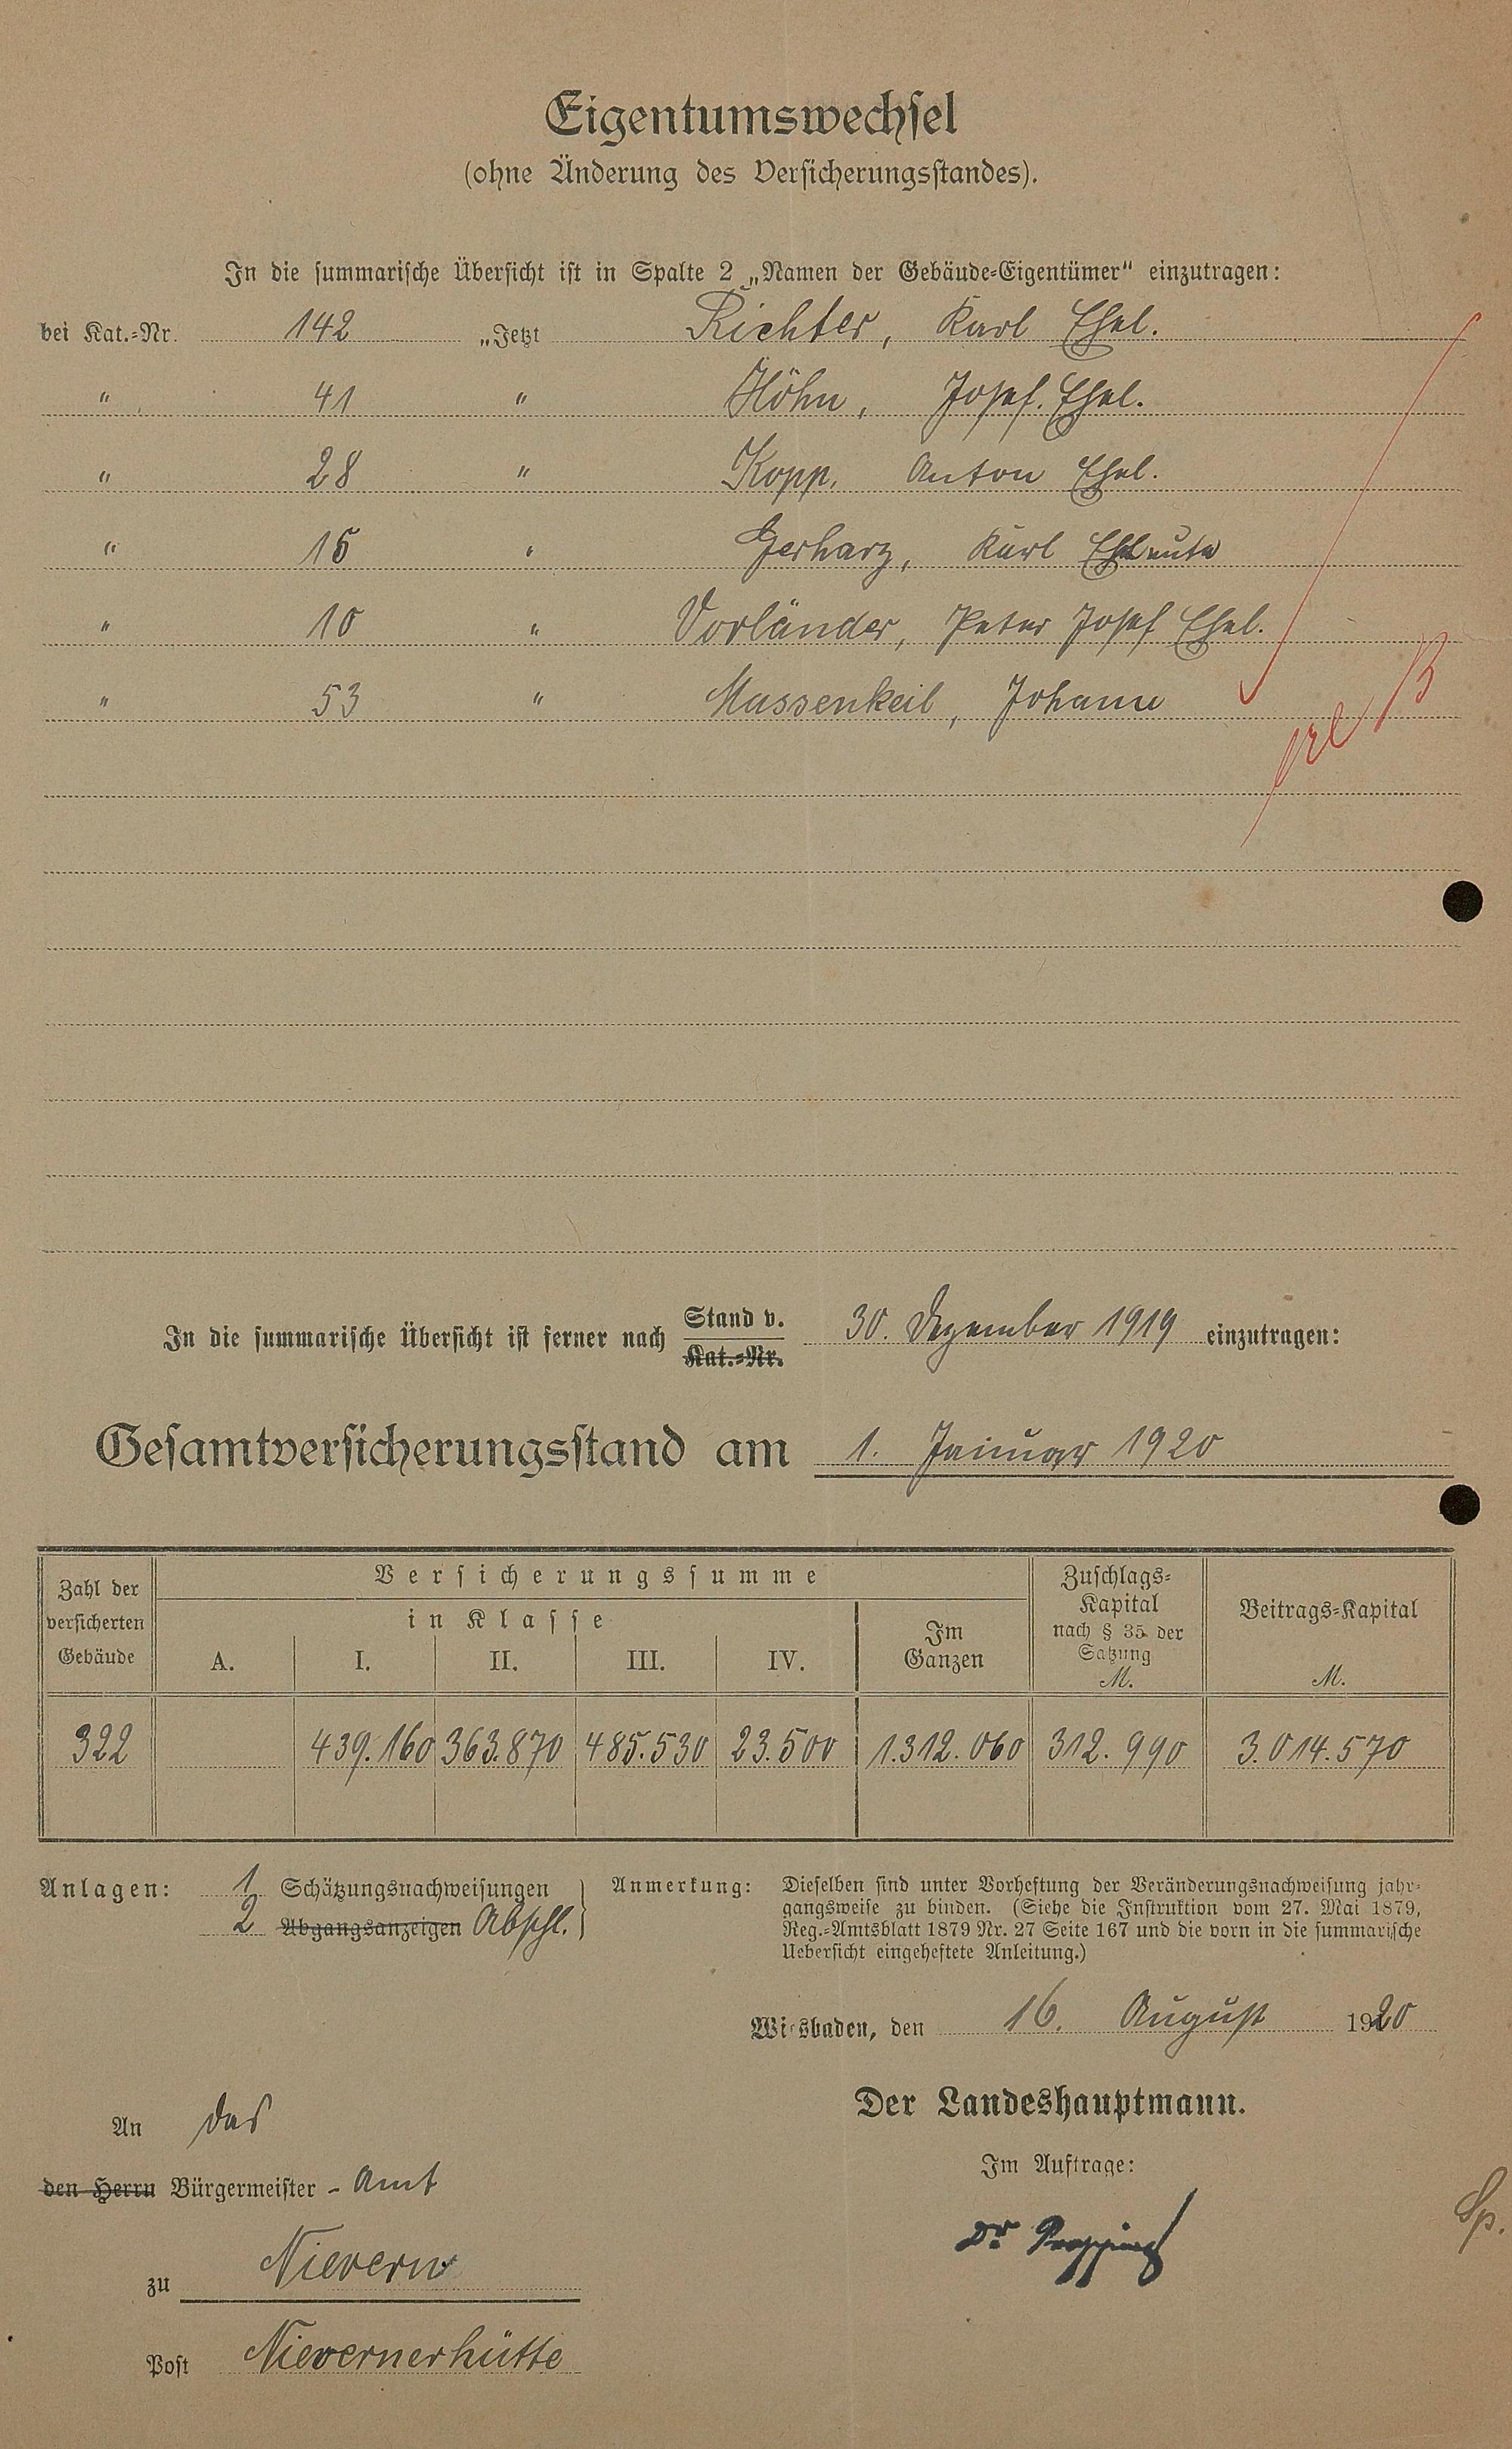 Eigentumswechsel
(ohne Änderung des Versicherungsstandes).
In die summarische Übersicht ist in Spalte 2 „Namen der Gebäude-Eigentümer“ einzutragen:
bei Kat.-Nr. 142 „Jetzt Richter, Karl Ehel.
" 41 " Höhn, Josef Ehel.
" 28 " Kopp, Anton Ehel.
" 15 " Gerharz, Karl Eheleute
" 10 " Vorländer, Peter Josef Ehel.
" 53 " Massenkeil, Johann
In die summarische Übersicht ist ferner nach Stand v. 30. Dezember 1919 einzutragen:
Kat.-Nr.
Gesamtversicherungsstand am 1. Januar 1920
Zahl der versicherten Gebäude
Versicherungssumme
in Klasse
A. I. II. III. IV.
Im Ganzen
Zuschlags-Kapital nach § 35 der Satzung M.
Beitrags-Kapital M.
322 439.160 363.870 485.530 23.500 1.312.060 312.990 3.014.570
Anlagen: 1 Schätzungsnachweisungen
2 Abgangsanzeigen Abschl.
Anmerkung: Dieselben sind unter Vorheftung der Veränderungsnachweisung jahr-
gangsweise zu binden. (Siehe die Instruktion vom 27. Mai 1879,
Reg.-Amtsblatt 1879 Nr. 27 Seite 167 und die vorn in die summarische
Uebersicht eingeheftete Anleitung.)
Wiesbaden, den 16. August 1920
Der Landeshauptmann.
Im Auftrage:
Dr.
An das
den Herrn Bürgermeister-Amt
zu Nievern
Post Nievernerhütte
Sp.